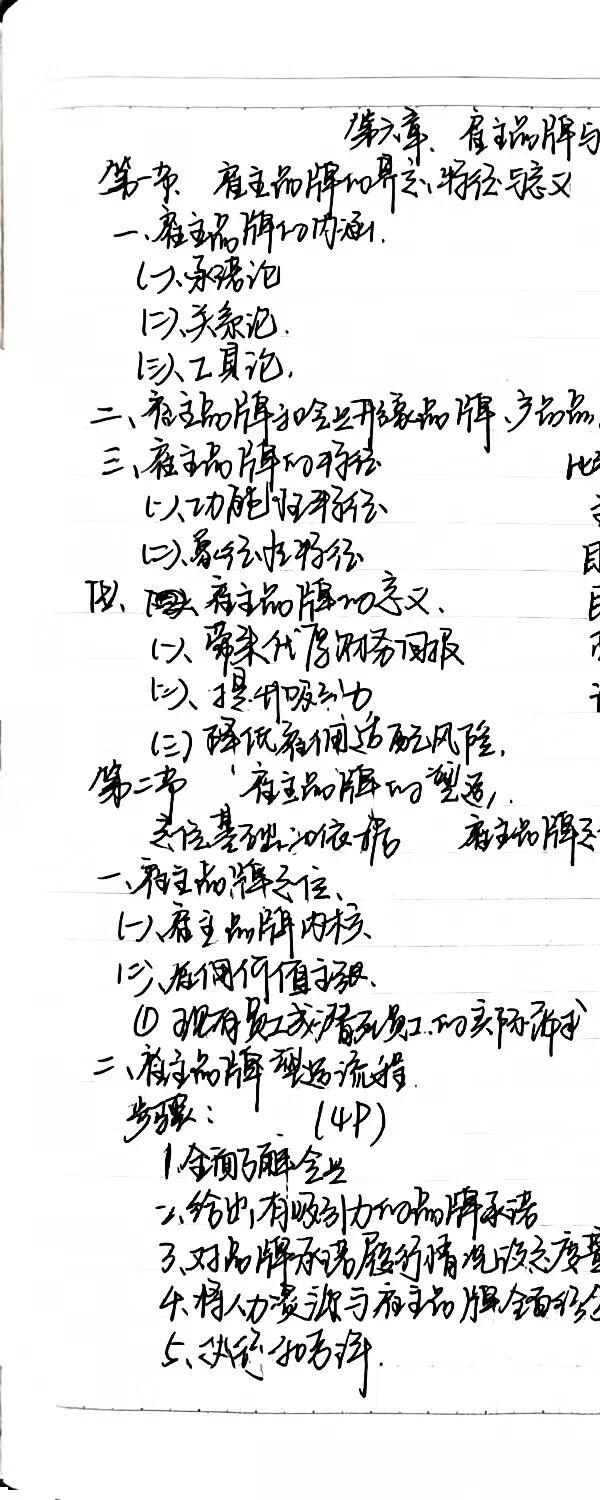 第六章、雇主品牌与
第一节、雇主品牌的界定、特征与意义
一、雇主品牌的内涵.
(一)、承诺论
(二)、关系论.
(三)、工具论.
二、雇主品牌和企业形象品牌、产品品
三、雇主品牌的特征
(一)、功能性特征
(二)、象征性特征
四、雇主品牌的意义.
(一)、带来代厚财务回报
(二)、提升吸引力
(三)降低雇佣适配风险.
第二节 雇主品牌的塑造.
定位基础的依据 雇主品牌定
一、雇主品牌定位、
(一)、雇主品牌内核
(二)、雇佣价值主张.
① 现有员工或潜在员工的实际诉求
二、雇主品牌塑造流程.
步骤: (4P)
1.全面了解企业
2.给出有吸引力的品牌承诺
3、对品牌承诺履行情况设定度量
4、将人力资源与雇主品牌全面结合
5、执行和管理.